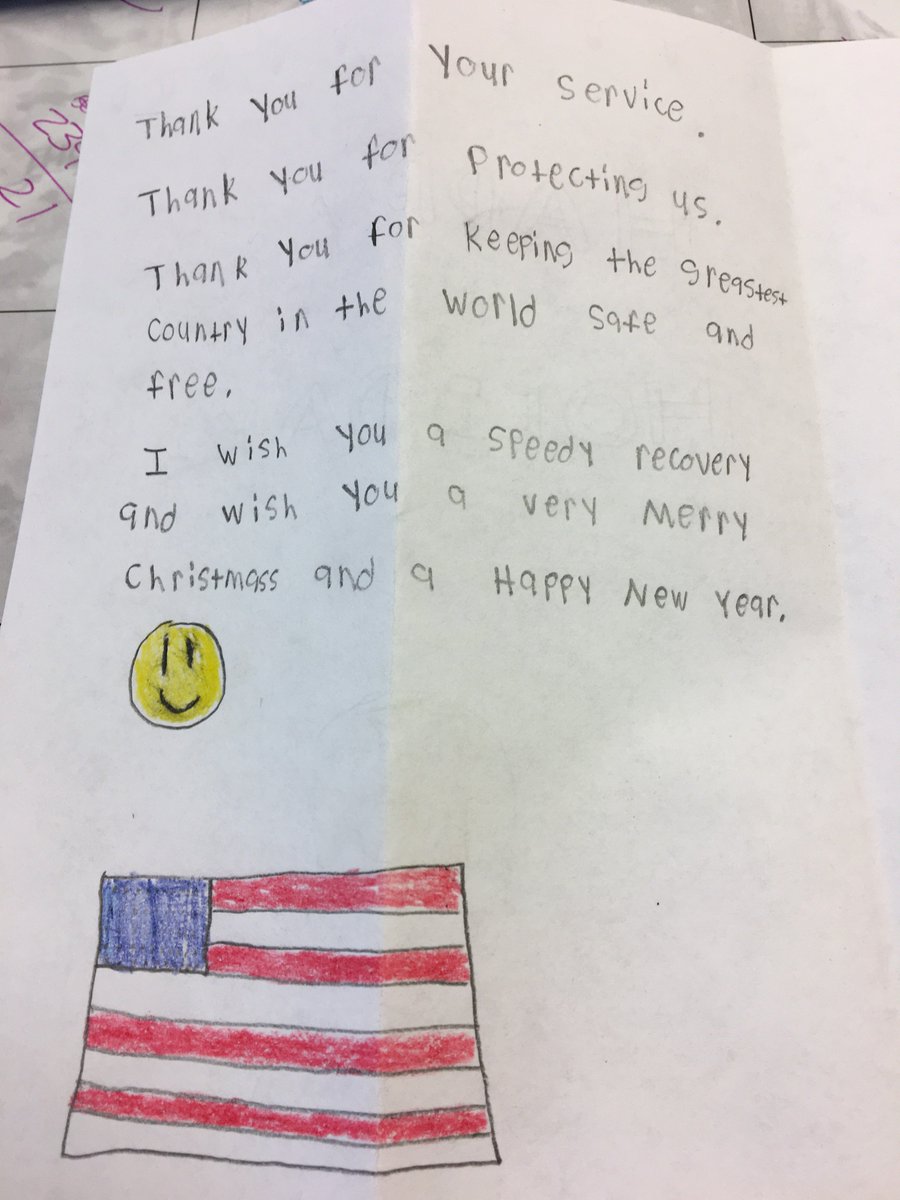 Thank you for your service.
Thank you for Protecting us.
Thank you for keeping the greastest
Country in the world safe and
free.
I wish you a speedy recovery
and wish you a very Merry
Christmass and a Happy New Year.